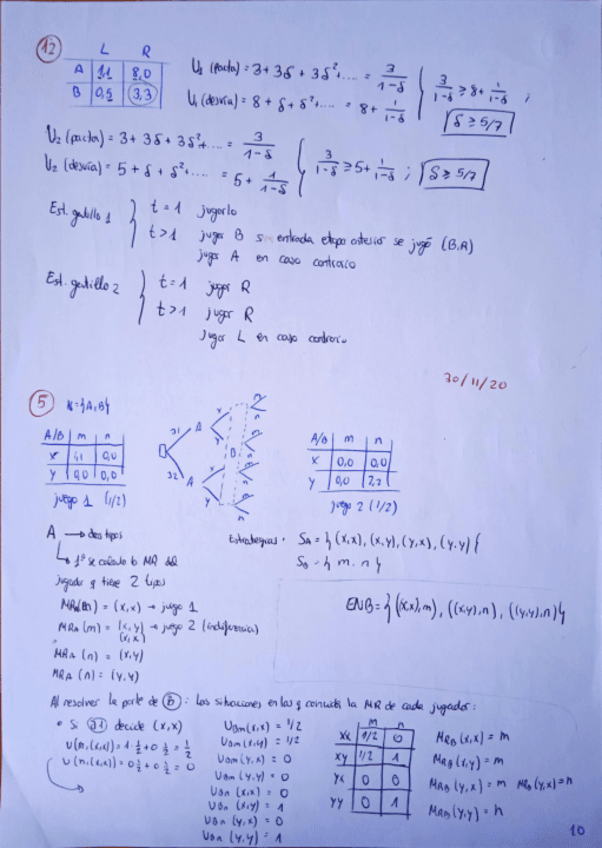 12
L R
A 1,1 8,0
B 0,5 3,3
U1 (pacta) = 3+3δ+3δ²+.... = 3/1-δ
U1 (desvía) = 8+δ+δ²+.... = 8+ 1/1-δ
3/1-δ ≥ 8+ 1/1-δ ;
δ ≥ 5/7
U2 (pacta) = 3+3δ+3δ²+.... = 3/1-δ
U2 (desvía) = 5+δ+δ²+..... = 5+ 1/1-δ
3/1-δ ≥ 5+ 1/1-δ ; δ ≥ 5/7
Est. gatillo 1
t=1 jugarlo
t>1 jugar B si entrada etapa anterior se jugó (B,R)
jugar A en caso contrario
Est. gatillo 2
t=1 jugar R
t>1 jugar R
jugar L en caso contrario
30/11/20
5 N={A,B}
A/B m n
x 1,1 0,0
y 0,0 0,0
juego 1 (1/2)
A/B m n
x 0,0 0,0
y 0,0 2,2
juego 2 (1/2)
A → dos tipos
1º se calcula la MR del
jugador q tiene 2 tipos
Estrategias: SA = {(x,x), (x,y), (y,x), (y,y)}
SB = {m, n}
MRA (m) = (x,x) → juego 1
MRA (m) = (x,y) → juego 2 (indiferencia)
(x,x)
MRA (n) = (x,y)
MRA (n) = (y,y)
ENB = {((x,x),m), ((x,y),n), ((y,y),n)}
Al resolver la parte de B: Las situaciones en las q coincida la MR de cada jugador:
• Si J1 decide (x,x)
U(m,(x,x)) = 1·1/2+0·1/2 = 1/2
U(n,(x,x)) = 0·1/2+0·1/2 = 0
UBm(x,x) = 1/2
UBm(x,y) = 1/2
UBm(y,x) = 0
UBm(y,y) = 0
UBn(x,x) = 0
UBn(x,y) = 1
UBn(y,x) = 0
UBn(y,y) = 1
m n
xx 1/2 0
xy 1/2 1
yx 0 0
yy 0 1
MRB(x,x) = m
MRB(x,y) = m
MRB(y,x) = m MRB(y,x) = n
MRB(y,y) = n
10